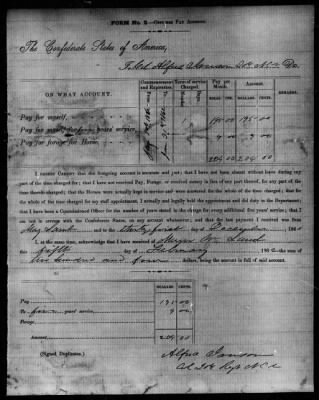 FORM No. 2—OFFICERS PAY ACCOUNT.
The Confederate States of America,
To Col Alfred Dr.
ON WHAT ACCOUNT.
Commencement and Expiration.
Term of service Charged.
Pay per Month.
Amount.
REMARKS.
Pay for myself,
195 00 195 00
Pay for years service,
9 00 9 00
Pay for forage for Horse,
204 00 204 00
I HEREBY CERTIFY that the foregoing account is accurate and just; that I have not been absent without leave during any
part of the time charged for; that I have not received Pay, Forage, or received money in lieu of any part thereof, for any part of the
time therein charged; that the Horses were actually kept in service and were mustered for the whole of the time charged; that for the
whole of the time charged for my staff appointment, I actually and legally held the appointment and did duty in the Department;
that I have been a Commissioned Officer for the number of years stated in the charge for every additional five years' service; that I am
not in arrears with the Confederate States, on any account whatsoever; and that the last payment I received was from
and to the thirty first day of December 186
I, at the same time, acknowledge that I have received of Major Wm
this day of February 186 the sum of
two hundred and four dollars, being the amount in full of said account.
Pay
9 00
Forage,
Amount,
204 00
(Signed Duplicates.)
Alfred
Col